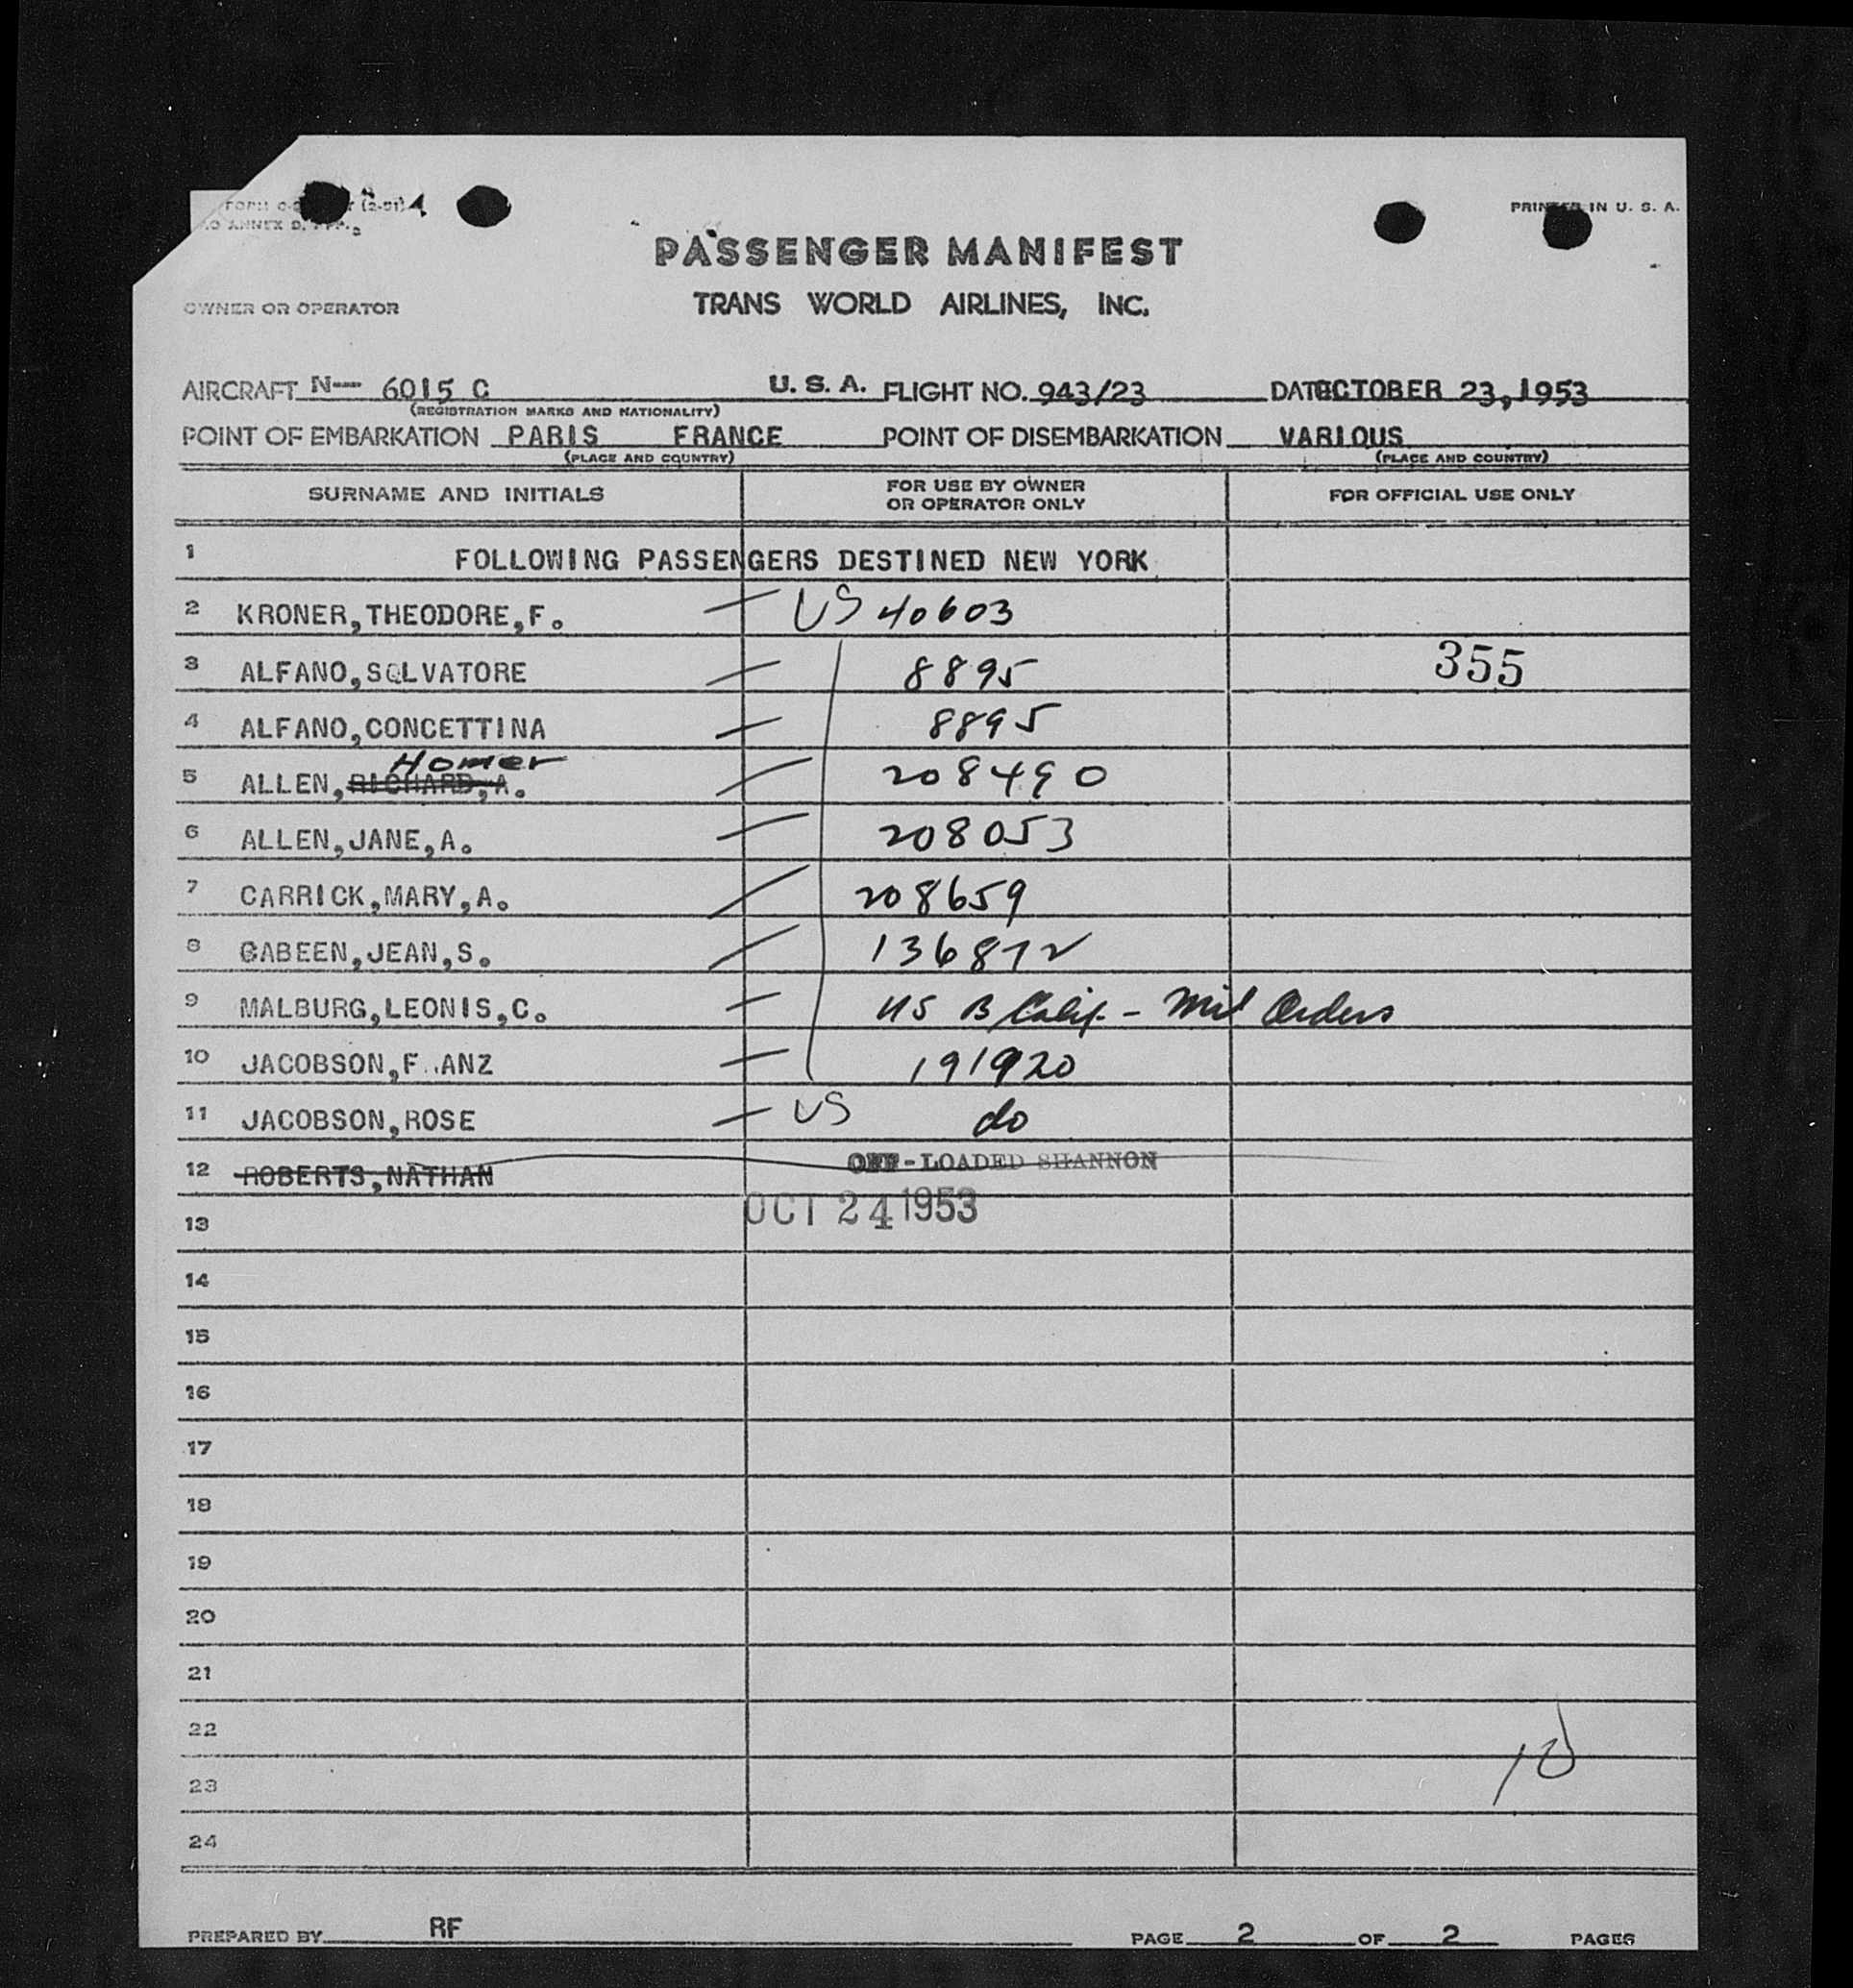 PRINTED IN U. S. A.
PASSENGER MANIFEST
OWNER OR OPERATOR TRANS WORLD AIRLINES, INC.
AIRCRAFT N-- 6015 C U. S. A. FLIGHT NO. 943/23 DATE OCTOBER 23, 1953
(REGISTRATION MARKS AND NATIONALITY)
POINT OF EMBARKATION PARIS FRANCE POINT OF DISEMBARKATION VARIOUS
(PLACE AND COUNTRY) (PLACE AND COUNTRY)
SURNAME AND INITIALS FOR USE BY OWNER OR OPERATOR ONLY FOR OFFICIAL USE ONLY
1 FOLLOWING PASSENGERS DESTINED NEW YORK
2 KRONER,THEODORE,F. US 40603
3 ALFANO,SOLVATORE 8895 355
4 ALFANO,CONCETTINA 8895
Homer
5 ALLEN,RICHARD,A. 208490
6 ALLEN,JANE,A. 208053
7 CARRICK,MARY,A. 208659
8 GABEEN,JEAN,S. 136872
9 MALBURG,LEONIS,C. US B Calif. - Mil Orders
10 JACOBSON,F..ANZ 191920
11 JACOBSON,ROSE US do
12 ROBERTS,NATHAN OFF-LOADED SHANNON
13 OCT 24 1953
14
15
16
17
18
19
20
21
22
10
23
24
PREPARED BY RF PAGE 2 OF 2 PAGES